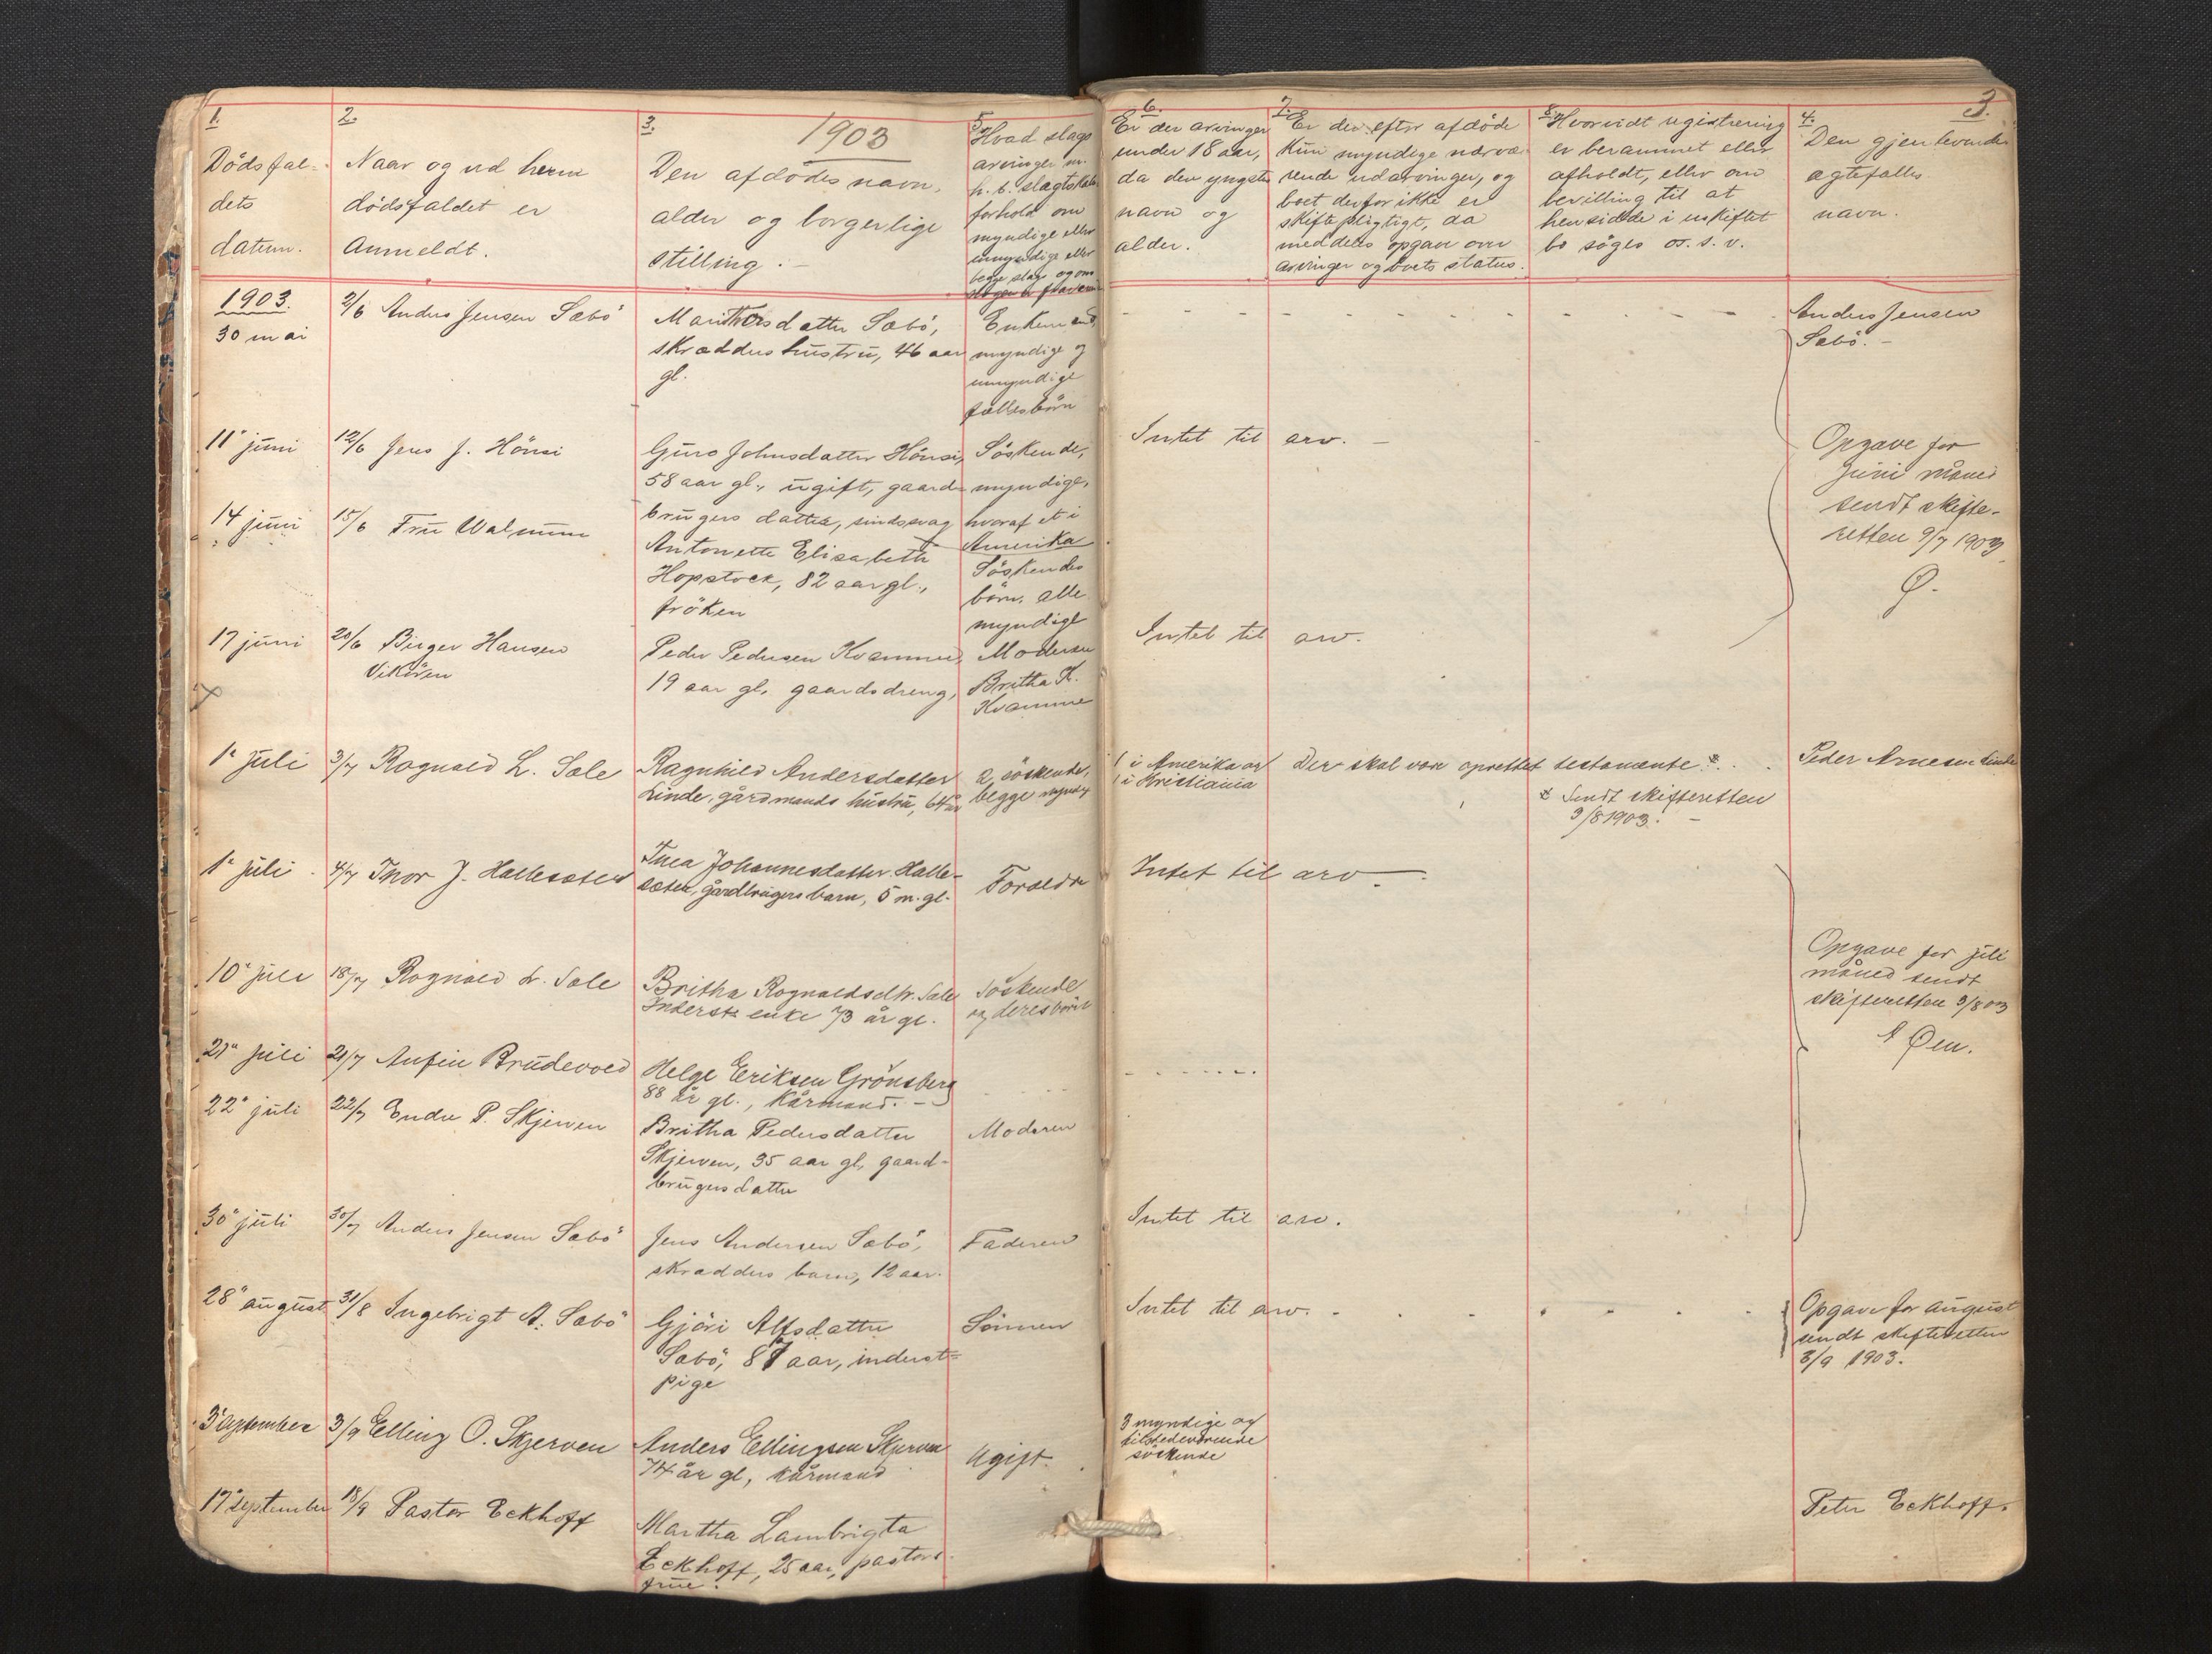 1903
3.
1.
Dödsfal-
dets
datum.
2.
Naar og ud hvem
dödsfaldet er
Anmeldt.
3.
Den afdödes navn,
alder og borgerlige
stilling.
5.
Hvad slags
arvinger m.
h. t. slægtskabs
forhold om
myndige eller
umyndige eller
begge slags og om
6.
Er der arvinger
under 18 aar,
da den yngstes
navn og
alder.
7.
Er der efter afdöde
kun myndige nærvæ-
rende udarvinger, og
boet derfor ikke er
skiftepligtigt, da
meddeles opgave over
arvinger og boets status.
8.
Hvorvidt registrering
er berammet eller
afholdt, eller om
bevilling til at
hensidde i uskiftet
bo söges o. s. v.
4.
Den gjenlevende
ægtefælles
navn.
1903.
30 mai
2/6 Anders Jensen Sæbö
Marit Torsdatter Sæbö,
skrædders hustru, 46 aar
gl.
Enkemand,
myndige og
umyndige
fællesbörn
Anders Jensen
Sæbö. -
11' juni
12/6 Jens J. Hönsi
Guro Johnsdatter Hönsi,
58 aar gl., ugift, gaard-
brugers datter, sindssvag
Söskende,
myndige,
hvoraf et i
Amerika
Intet til arv. -
Opgave for
Juni måned
sendt skifte-
retten 9/7 1903
Ø.
14 juni
15/6 Fru Walnum
Antonette Elisabeth
Hopstock, 82 aar gl.,
fröken
Söskendes
börn, alle
myndige
17 juni
20/6 Birger Hansen
Vikören
Peder Pedersen Kvamme,
19 aar gl. gaardsdreng,
Moderen
Britha K.
Kvamme
Intet til arv.
1' juli
3/7 Rognald L. Sæle
Ragnhild Andersdatter
Linde, gårdmands hustru, 64 år
2 söskende,
begge myndige
1 i Amerika og
1 i Kristiania
Der skal være oprettet testamente x. . .
x Sendt skifteretten
3/8 1903. -
Peder Arnesen Linde
1' juli
4/7 Thor J. Hallesæter
Thea Johannesdatter Halle-
sæter, gårdbrugers barn, 5 m. gl.
Forældre
Intet til arv -
10' juli
18/7 Rognald L. Sæle
Britha Rognaldsdtr. Sæle
Inderst enke 73 år gl.
Söskende
og deres börn
Opgave for juli
måned sendt
skifteretten 3/8 03
A Øen.
21' juli
21/7 Anfin Brudevold
Helge Eriksen Grönsberg
88 år gl., kårmand. -
22' juli
22/7 Endre P. Skjerven
Britha Pedersdatter
Skjerven, 35 aar gl, gaard-
brugers datter
Moderen
30' juli
30/7 Anders Jensen Sæbö
Jens Andersen Sæbö,
skrædders barn, 12 aar.
Faderen
Intet til arv.
28' august
31/8 Ingebrigt A. Sæbö
Gjöri Alfsdatter
Sæbö, 87 aar, inderst-
pige
Sönnen
Intet til arv.
Opgave for august
sendt skifteretten
3/9 1903.
3' september
3/9 Elling O. Skjerven
Anders Ellingsen Skjerven
74 år gl, kårmand
Ugift.
3 myndige og
tilstedeværende
söskende
17' september
18/9 Pastor Eckhoff
Martha Lambrigta
Eckhoff, 25 aar, pastors
frue.
Peter Eckhoff.